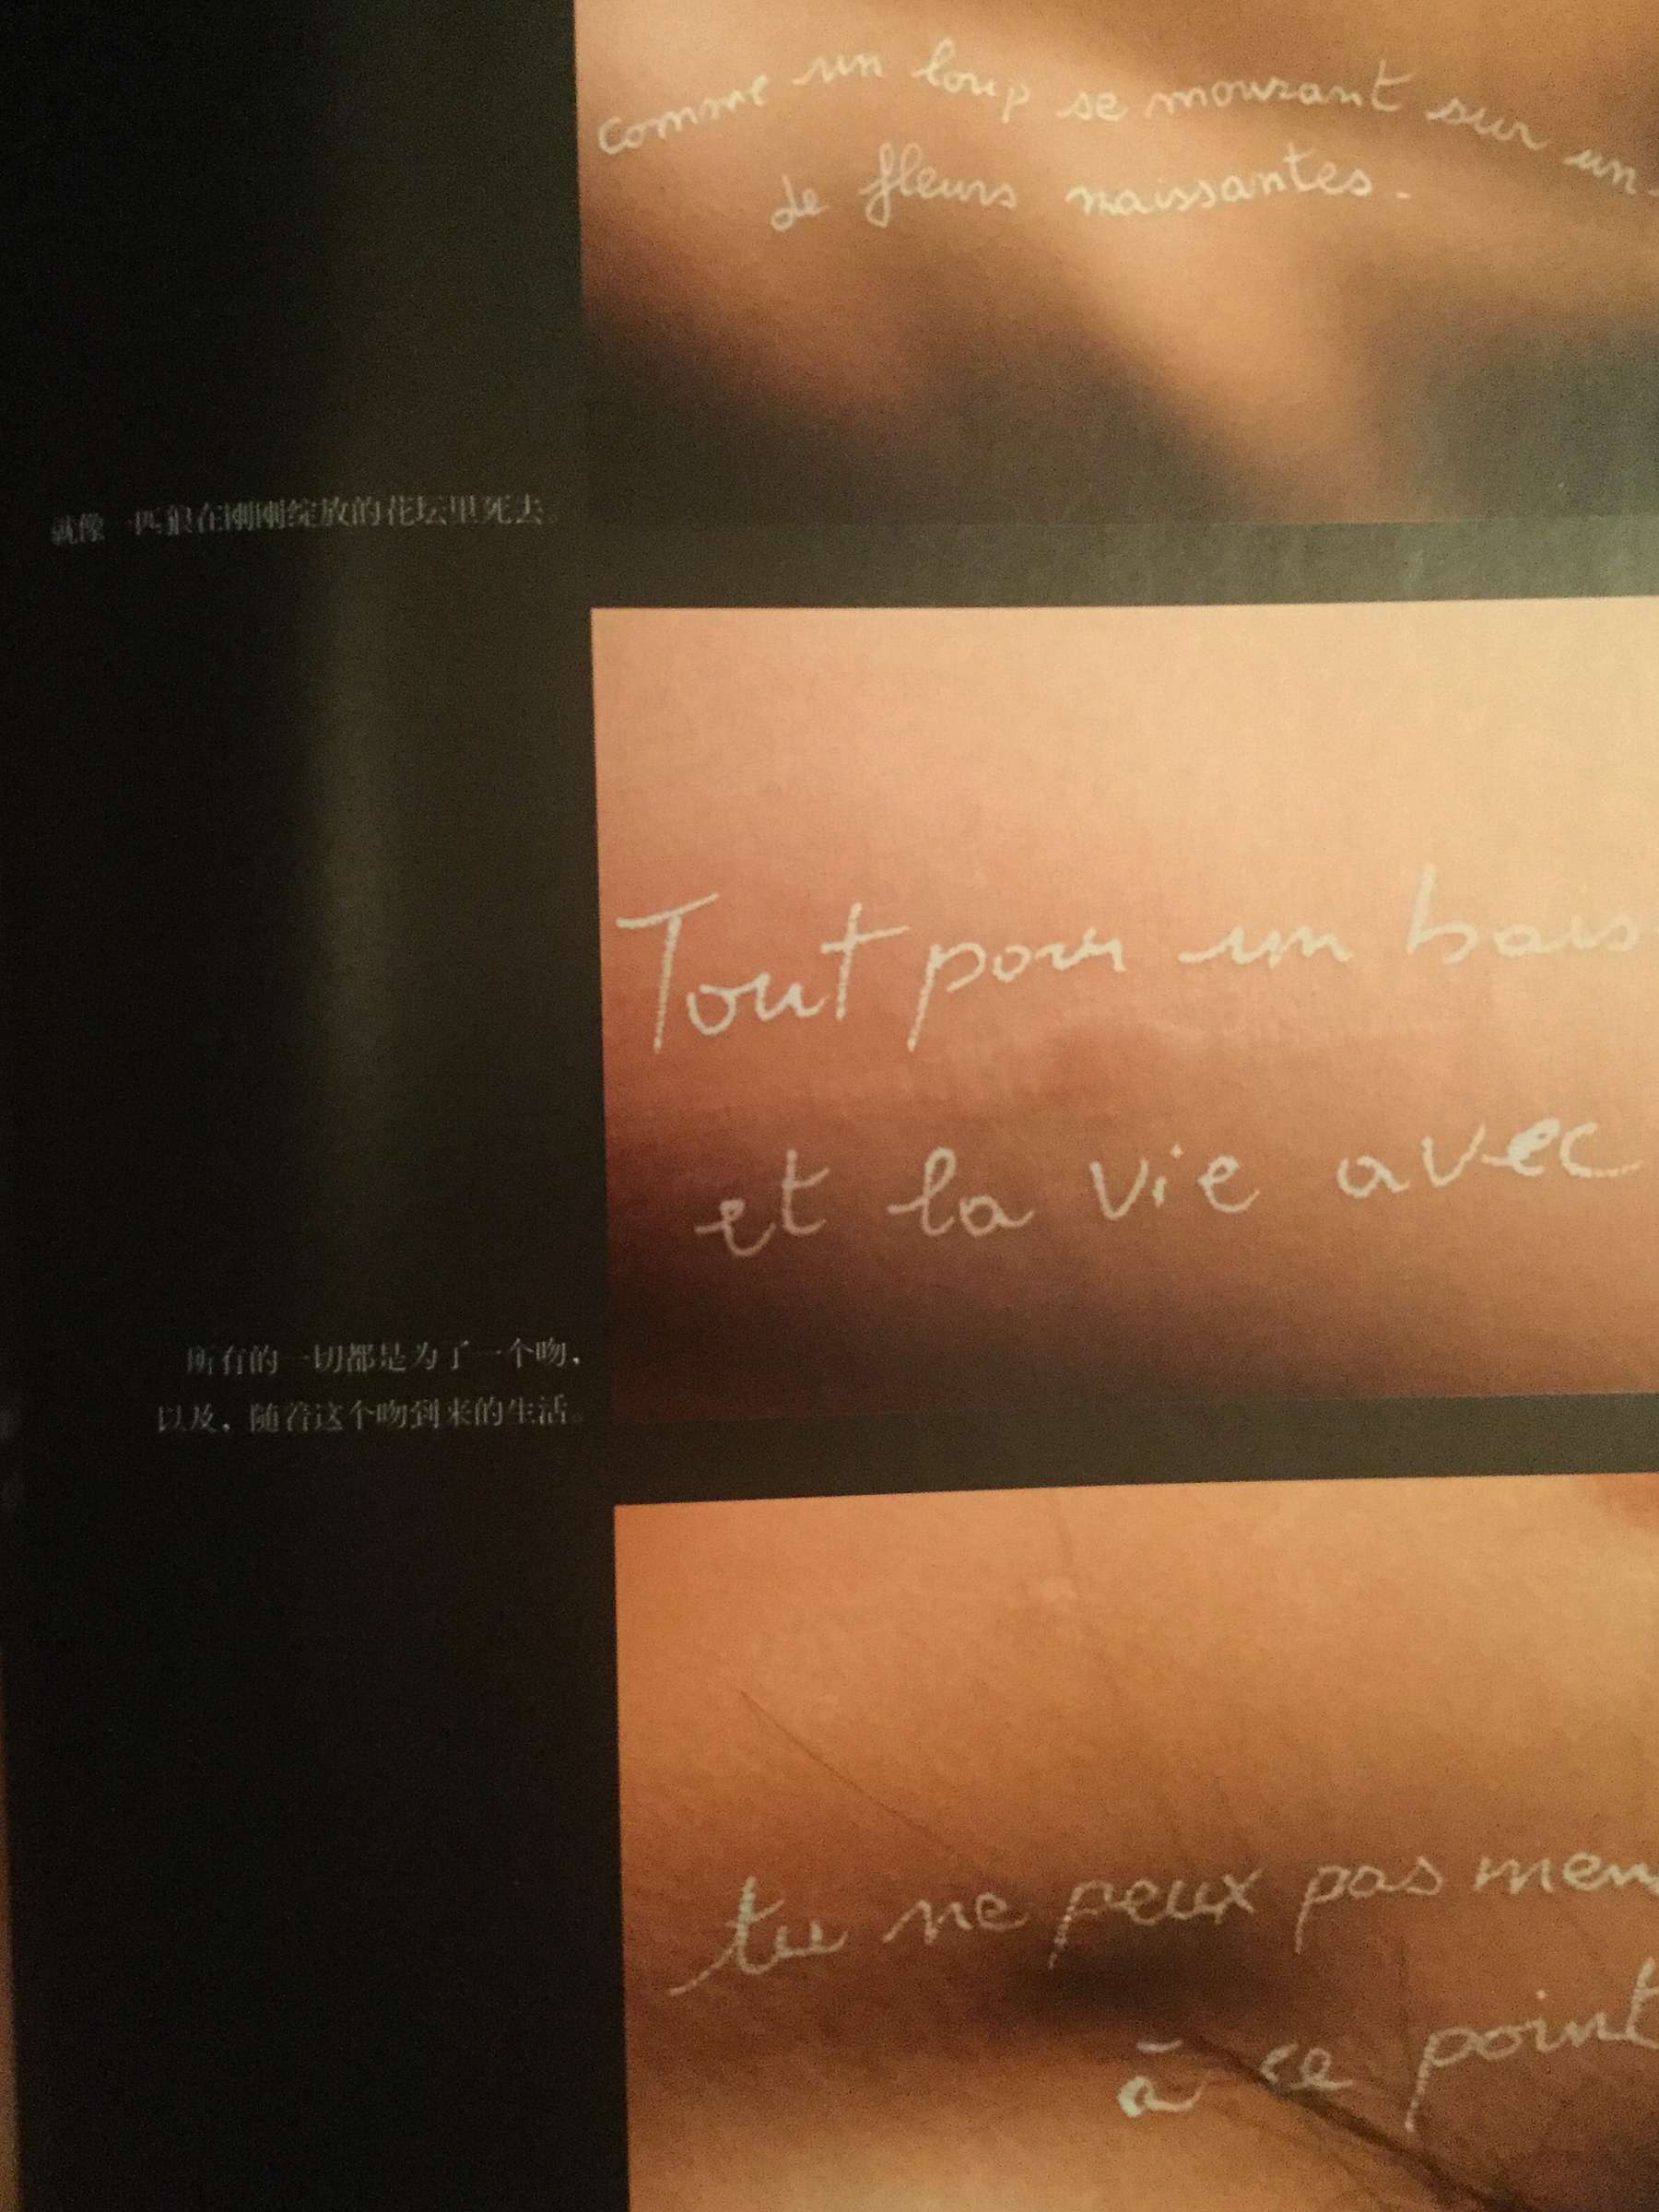 comme un loup se mourant sur un
de fleurs naissantes.
就像一匹狼在刚刚绽放的花坛里死去。
Tout pour un bais
et la vie avec
所有的一切都是为了一个吻,
以及,随着这个吻到来的生活。
tu ne peux pas men
à ce point